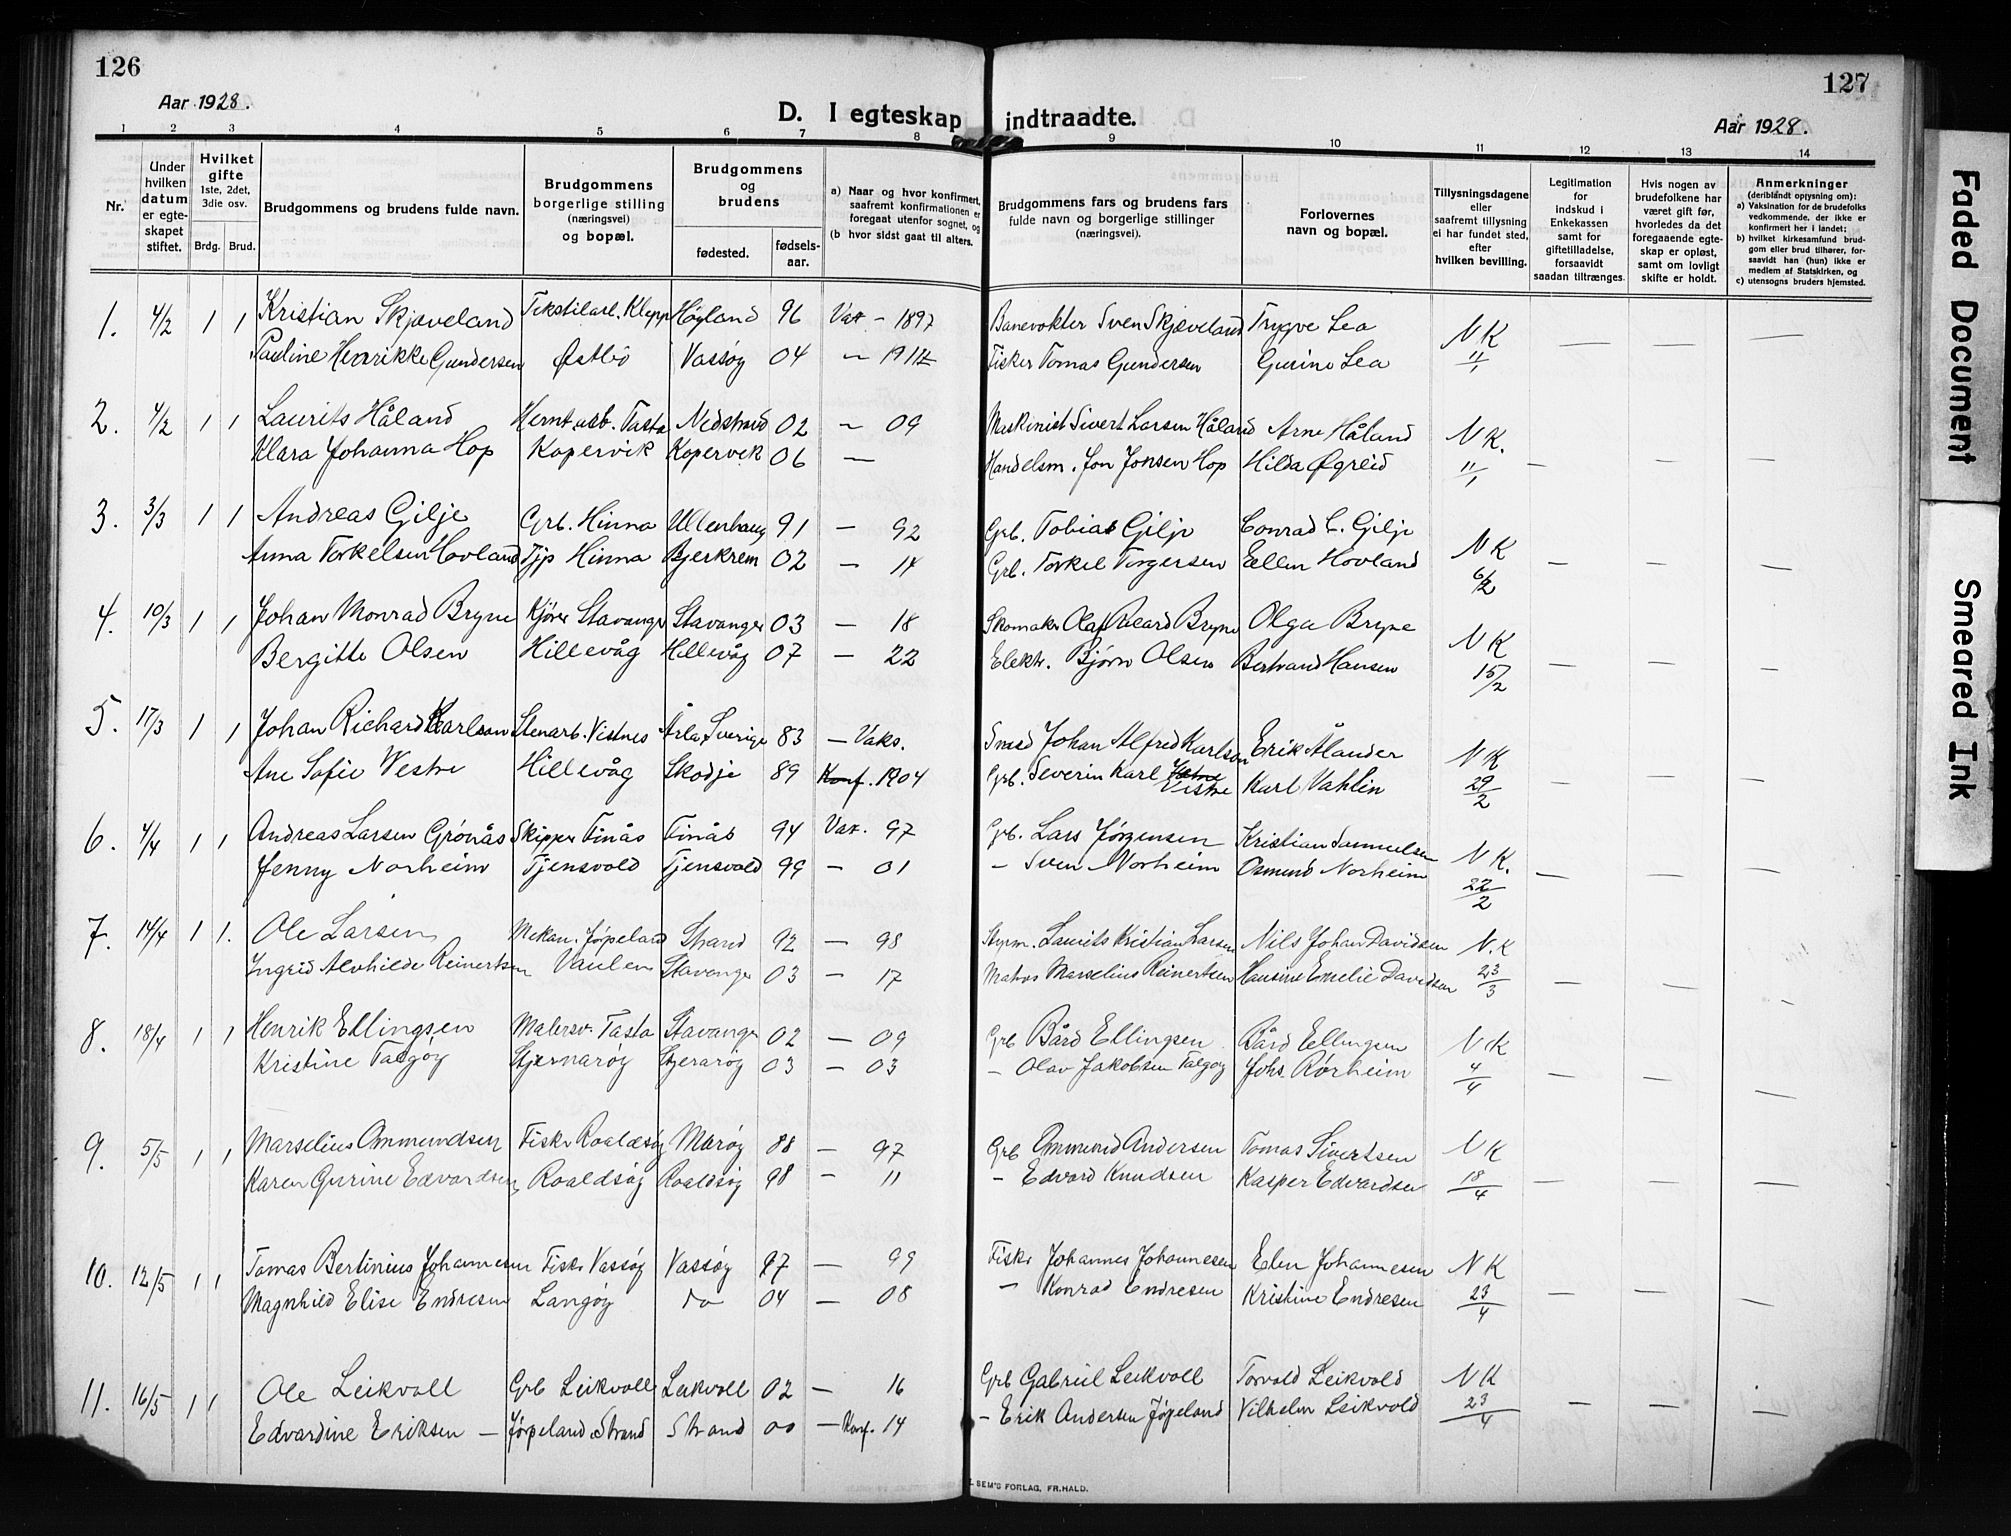 126
Aar 1928.
D. I egteskap indtraadte.
127
Aar 1928.
1 2 3 4 5 6 7 8 9 10 11 12 13 14
Nr.
Under hvilken datum er egteskapet stiftet.
Hvilket gifte 1ste, 2det, 3die osv.
Brdg. Brud.
Brudgommens og brudens fulde navn.
Brudgommens borgerlige stilling (næringsvei) og bopæl.
Brudgommens og brudens
fødested. fødselsaar.
a) Naar og hvor konfirmert, saafremt konfirmationen er foregaat utenfor sognet, og
(b hvor sidst gaat til alters.
Brudgommens fars og brudens fars fulde navn og borgerlige stillinger (næringsvei).
Forlovernes navn og bopæl.
Tillysningsdagene eller saafremt tillysning ei har fundet sted, efter hvilken bevilling.
Legitimation for indskud i Enkekassen samt for giftetilladelse, forsaavidt saadan tiltrænges.
Hvis nogen av brudefolkene har været gift før, hvorledes da det foregaaende egteskap er opløst, samt om lovligt skifte er holdt.
Anmerkninger (deriblandt opysning om):
a) Vaksination for de brudefolks vedkommende, der ikke er konfirmert her i landet;
b) hvilket kirkesamfund brudgom eller brud tilhører, forsaavidt han (hun) ikke er medlem af Statskirken, og
c) utensogns bruders hjemsted.
1. 4/2 1 1 Kristian Skjæveland Tekstilarb. Klepp Høyland 96 Vax - 1897 Banevokter Sven Skjæveland Trygve Lea NK — — —
Pauline Henrikke Gundersen Østbø Vassøy 04 - 1912 Fisker Tomas Gundersen Gurine Lea 11/1
2. 4/2 1 1 Laurits Håland Hermt.arb. Tasta Nedstrand 02 - 09 Maskinist Sivert Larsen Håland Arne Håland NK.
Klara Johanna Hop Kopervik Kopervik 06 — Handelsm. Jon Jonsen Hop Hilda Øgreid 11/1 — — —
3. 3/3 1 1 Andreas Gilje Grb. Hinna Ullenhaug 91 - 92 Grb. Tobias Gilje Conrad C. Gilje NK
Anna Torkelsen Hovland Tjp Hinna Bjerkrem 02 - 14 Grb. Torkel Torgersen Ellen Hovland 6/2 — — —
4. 10/3 1 1 Johan Monrad Bryne Kjører Stavanger Stavanger 03 - 18 Skomaker Olaf Rikard Bryne Olga Bryne NK
Bergitte Olsen Hillevåg Hillevåg 07 - 22 Elektr. Bjørn Olsen Bertrand Hansen 15/2 — — —
5. 17/3 1 1 Johan Richard Karlson Stenarb. Vistnes Ärla, Sverige 83 - Vaks. Smed Johan Alfred Karlson Erik Ålander NK
Ane Sofie Vestre Hillevåg Skodje 89 Konf. 1904 Grb. Severin Karl Vestre Karl Vahlin 29/2 — — —
6. 4/4 1 1 Andreas Larsen Grønås Skipper Finås Finås 94 Vax. 97 Grb. Lars Jørgensen Kristian Samuelsen NK.
Jenny Norheim Tjensvold Tjensvold 99 - 01 - Sven Norheim Osmund Norheim 22/2 — — —
7. 14/4 1 1. Ole Larsen Mekan. Jøpeland Strand 92 - 98 Styrm. Laurits Kristian Larsen Nils Johan Davidsen N.K
Ingrid Alvhilde Reinertsen Vaulen Stavanger 03 - 17 Matros Marselius Reinertsen Hansine Emelie Davidsen 23/3 — — —
8. 18/4 1 1 Henrik Ellingsen Malersv. Tasta Stavanger 02 - 09 Grb Bård Ellingsen Bård Ellingsen NK
Kristine Talgøy Stjernarøy Stjerarøy 03 - 03 - Olav Jakobsen Talgøy Johs. Rørheim 4/4 — — —
9. 5/5 1 1 Marselius Ommundsen Fisker Roaldsøy Morøy 88 - 97 Grb Ommund Andersen Tomas Sivertsen NK
Karen Gurine Edvardsen Roaldsøy Roaldsøy 98 - 11 - Edvard Knudsen Kasper Edvardsen 18/4 — — —
10. 12/5 1 1 Tomas Bertinius Johannesen Fisker Vassøy Vassøy 97 - 99 Fisker Johannes Johannesen Elen Johannesen NK
Magnhild Elise Endresen Langøy do 04 - 08 - Konrad Endresen Kristine Endresen 23/4 — — —
11. 16/5 1 1 Ole Leikvoll Grb Leikvoll Leikvoll 02 - 16 Grb Gabriel Leikvoll Torvald Leikvold NK
Edvardine Eriksen — Jøpeland, Strand Strand 00 - Konf. 14 - Erik Andersen Jøpeland Vilhelm Leikvold 23/4 — — —
SEM'S FORLAG, FR.HALD.
Faded Document
Smeared Ink